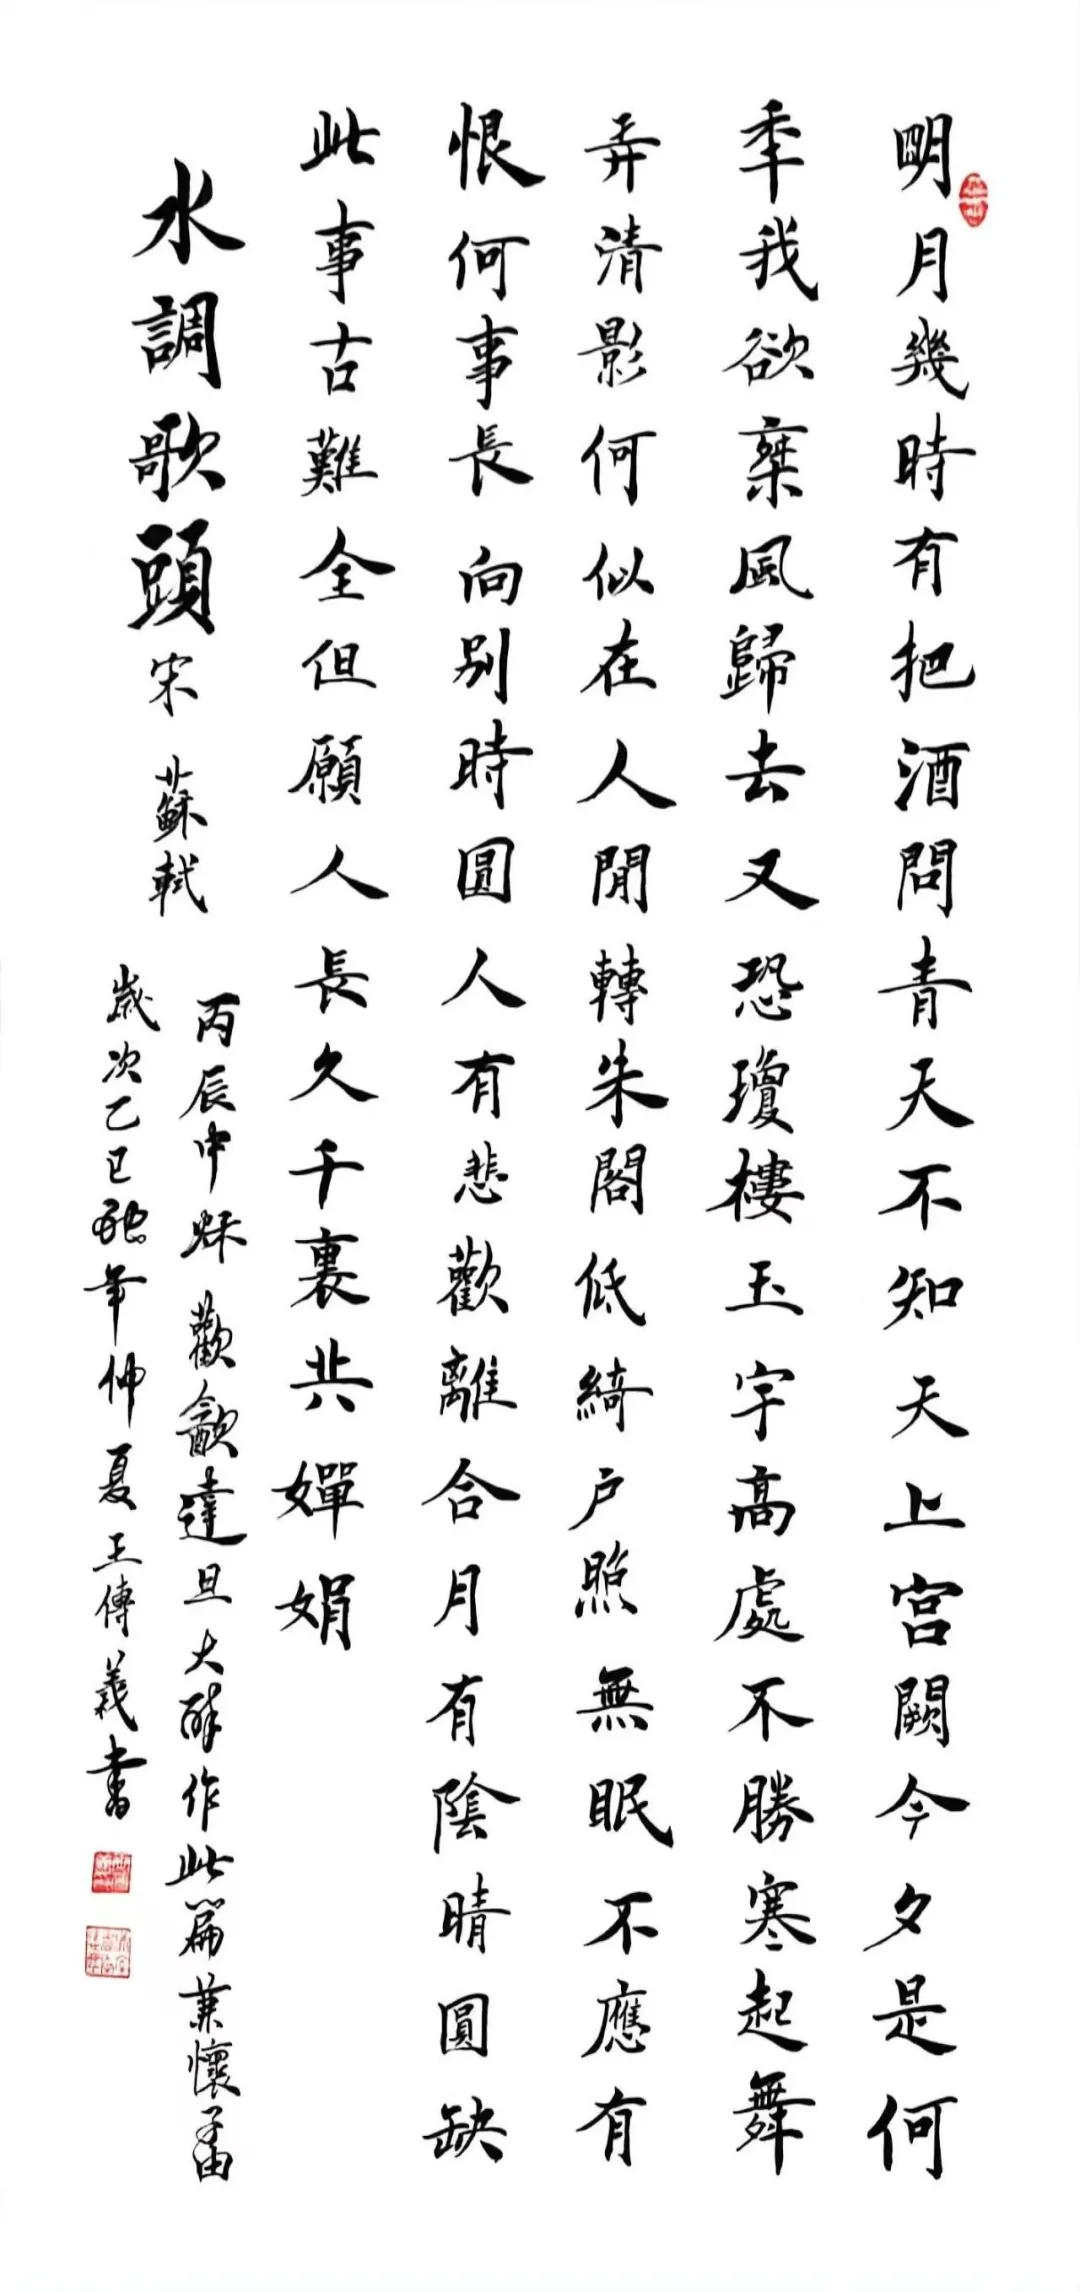 明月幾時有把酒問青天不知天上宮闕今夕是何
秊我欲乘風歸去又恐瓊樓玉宇高處不勝寒起舞
弄清影何似在人閒轉朱閣低綺户照無眠不應有
恨何事長向別時圓人有悲歡離合月有陰晴圓缺
此事古難全但願人長久千裏共嬋娟
水調歌頭宋 蘇軾
丙辰中秋歡飲達旦大醉作此篇兼懷子由
歲次乙巳蛇年仲夏王傳義書